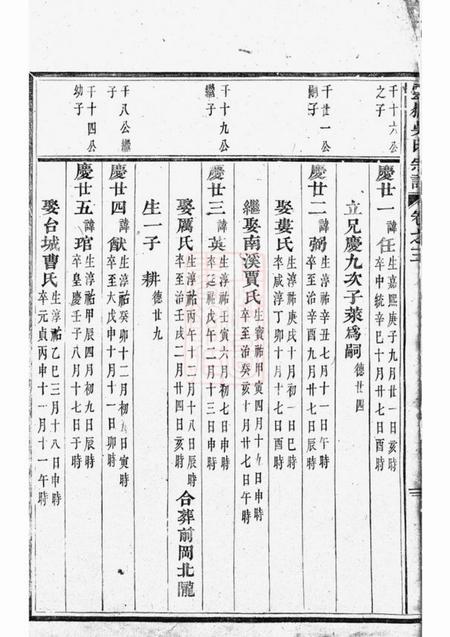 吳氏宗譜 卷之三
千十六公之子
慶廿一 諱任 生嘉熙庚子九月廿一日亥時 卒中統辛巳十月廿七日酉時
立兄慶九次子萊爲嗣 德廿四
千廿一公
慶廿二 諱弼 生淳祐辛丑七月十一日午時 卒至治辛酉九月廿日午時
娶婁氏 生淳祐庚戌十月初一日巳時 卒咸淳丁卯十月十七日巳時
繼娶南溪賈氏 生寶祐甲寅四月十九日申時 卒至治癸亥十月廿七日午時
千十九公繼子
慶廿三 諱英 生淳祐壬寅六月初七日申時 卒延祐戊午二月十三日申時
娶厲氏 生淳祐丙午十二月十一日辰時 卒至治壬戌二月廿四日亥時 合葬前岡北隴
生一子 耕 德廿九
千八公繼子
慶廿四 諱猷 生淳祐癸卯十二月初八日寅時 卒至大戊申十月十一日卯時
千十四公幼子
慶廿五 諱琯 生淳祐甲辰四月初九日辰時 卒皇慶壬子八月十七日子時
娶台城曹氏 生淳祐乙巳三月十八日申時 卒元貞丙申十一月十一日午時